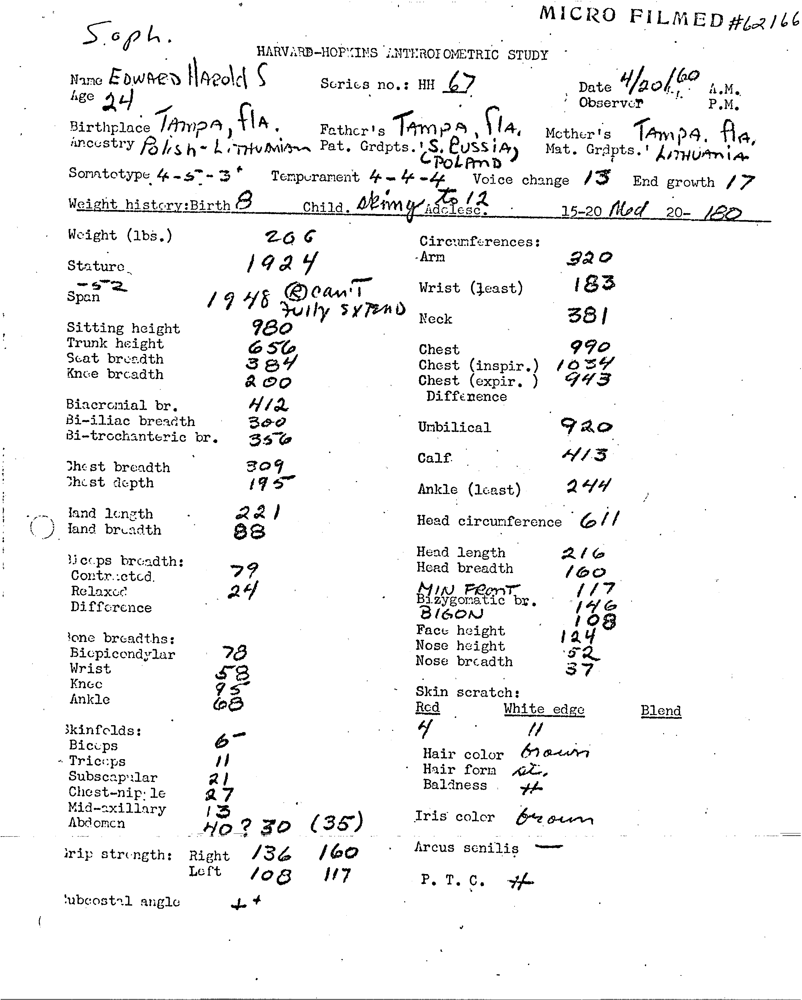 MICRO FILMED #62166
Soph.
HARVARD-HOPKINS ANTHROPOMETRIC STUDY
Name EDWARD HAROLD S Series no.: HH 67 Date 4/20/60 A.M.
Age 24 Observer P.M.
Birthplace TAMPA, FLA. Father's TAMPA, FLA. Mother's TAMPA, FLA.
Ancestry POLISH - LITHUANIAN Pat. Grdpts.' S. RUSSIA, Mat. Grdpts.' LITHUANIA
(POLAND)
Somatotype 4-5-3+ Temperament 4-4-4 Voice change 13 End growth 17
Weight history: Birth 8 Child. skinny to 12 Adolesc. 15-20 Med 20- 180
Weight (lbs.) 206
Stature 1924
-52
Span 1948 ® can't fully extend
Sitting height 980
Trunk height 656
Seat breadth 384
Knee breadth 200
Biacromial br. 412
Bi-iliac breadth 300
Bi-trochanteric br. 356
Chest breadth 309
Chest depth 195
Hand length 221
Hand breadth 88
Biceps breadth:
Contracted 79
Relaxed 24
Difference
Bone breadths:
Biepicondylar 78
Wrist 58
Knee 95
Ankle 68
Skinfolds:
Biceps 6-
Triceps 11
Subscapular 21
Chest-nipple 27
Mid-axillary 13
Abdomen 40? 30 (35)
Grip strength: Right 136 160
Left 108 117
Subcostal angle ++
Circumferences:
Arm 320
Wrist (least) 183
Neck 381
Chest 990
Chest (inspir.) 1034
Chest (expir. ) 943
Difference
Umbilical 920
Calf 413
Ankle (least) 244
Head circumference 611
Head length 216
Head breadth 160
MIN FRONT 117
Bizygomatic br. 146
BIGON 108
Face height 124
Nose height 52
Nose breadth 37
Skin scratch:
Red White edge Blend
4 11
Hair color brown
Hair form st.
Baldness #
Iris color brown
Arcus senilis —
P. T. C. #